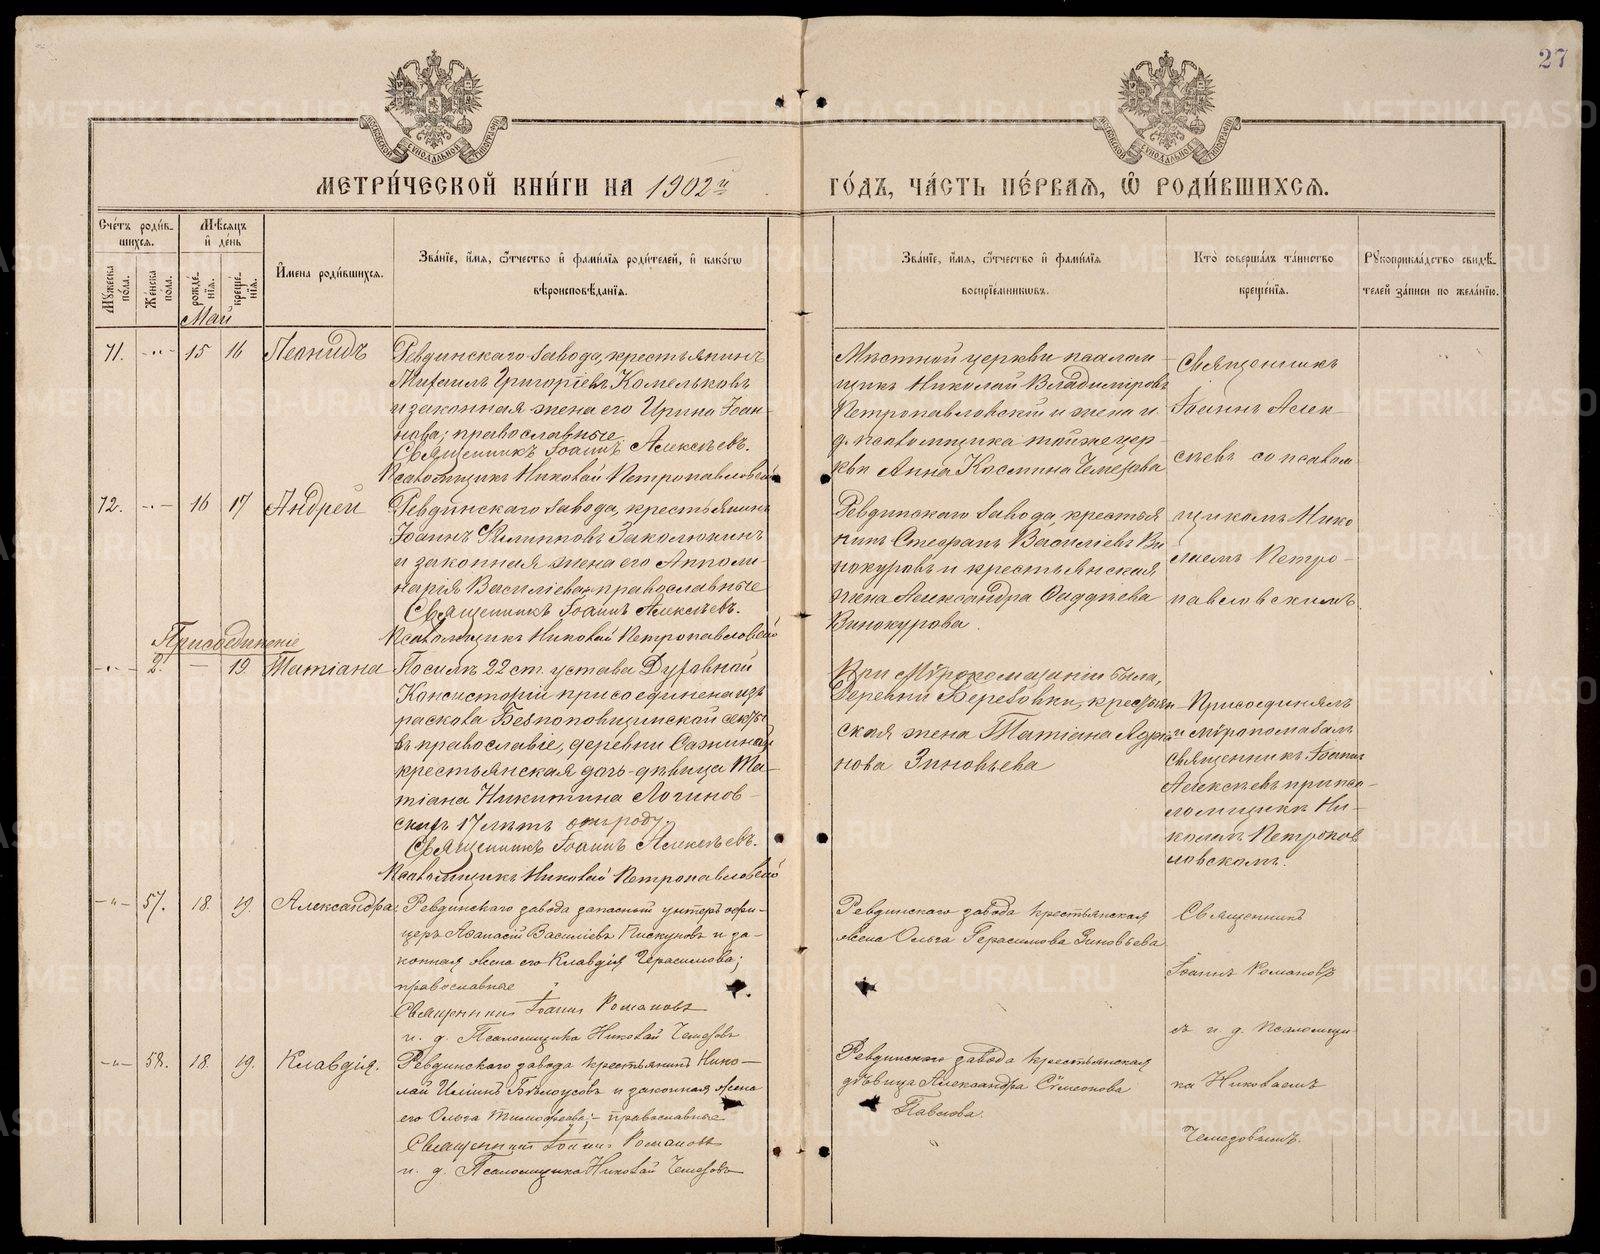 27
МЕТРИ́ЧЕСКОЙ КНИ́ГИ НА 1902й
ГО́ДЪ, ЧА́СТЬ ПЕ́РВАЯ, Ѿ РОДИ́ВШИХСЯ.
Сче́тъ роди́в-
шихся.
Му́жеска
по́ла.
Же́нска
по́ла.
Мѣ́сяцъ
и̂ де́нь
рожде́-
нїя.
креще́-
нїя.
И̂́мена роди́вшихся.
Зва́нїе, и̂́мя, ѻ҆́тчество и̂ фами́лїя роди́телей, и̂ како́гѡ
вѣроисповѣ́данїя.
Зва́нїе, и̂́мя, ѻ҆́тчество и̂ фами́лїя
воспрїе́мниковъ.
Кто̀ соверша́лъ та́инство
креще́нїя.
Рꙋкоприкла́дство свидѣ́-
телей за́писи по жела́нїю.
Май
71. -"- 15 16 Леонидъ
Ревдинскаго завода, крестьянинъ
Михаилъ Григоріевъ Комельковъ
и законная жена его Ирина Іоан-
нова; православные
Священникъ Іоаннъ Алексѣевъ.
Псаломщикъ Николай Петропавловскій
Мѣстной церкви псалом-
щикъ Николай Владиміровъ
Петропавловскій и жена и.
д. псаломщика той же цер-
кви Анна Космина Чемезова
Священникъ
Іоаннъ Алек-
сѣевъ со псалом
72. -"- 16 17 Андрей
Ревдинскаго завода, крестьянинъ
Іоаннъ Филипповъ Заколюкинъ
и законная жена его Апполи-
нарія Василіева, православные
Священникъ Іоаннъ Алексѣевъ.
Псаломщикъ Николай Петропавловскій
Ревдинскаго завода, крестья
нинъ Стефанъ Василіевъ Ви
нокуровъ и крестьянская
жена Александра Фаддѣева
Винокурова.
щикомъ Нико
лаемъ Петро-
павловскимъ.
Присоединеніе
-"- 2. - 19 Татіана
По силѣ 22 ст. устава Духовной
Консисторіи присоединена изъ
раскола Безпоповщинской секты
въ православіе, деревни
крестьянская дочь-дѣвица Та-
тіана Никитина Логинов-
скихъ 17 лѣтъ отъ роду.
Священникъ Іоаннъ Алексѣевъ.
Псаломщикъ Николай Петропавловскій
При Мѵропомазаніи была,
Деревни крестьян-
ская жена Татіана Адріа
нова Зиновьева
Присоединялъ
и мѵропомазалъ
священникъ Іоаннъ
Алексѣевъ при пса-
ломщикѣ Ни-
колаѣ Петропав
ловскомъ.
-"- 57. 18. 19. Александра.
Ревдинскаго завода запасный унтеръ офи-
церъ Аѳанасій Василіевъ Пискуновъ и за-
конная жена его Клавдія Герасимова;
православные
Священникъ Іоаннъ Романовъ
и. д. Псаломщика Николай Чемезовъ
Ревдинскаго завода крестьянская
жена Ольга Герасимова Зиновьева
Священникъ
Іоаннъ Романовъ
съ и. д. Псаломщи-
-"- 58. 18. 19. Клавдія.
Ревдинскаго завода крестьянинъ Нико-
лай Ильинъ Бѣлоусовъ и законная жена
его Ольга Тимофеева; - православные
Священникъ Іоаннъ Романовъ
и. д. Псаломщика Николай Чемезовъ
Ревдинскаго завода крестьянская
дѣвица Александра Сѵмеонова
Павлова.
ка Николаемъ
Чемезовымъ.